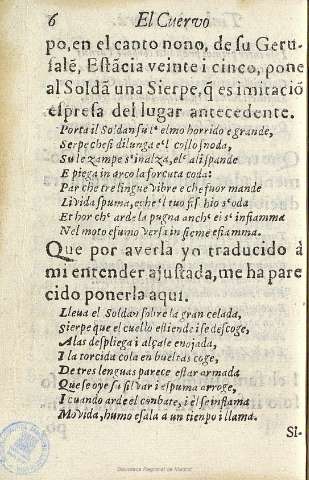 6 El Cuervo
po, en el canto nono, de su Geru-
salē, Estācia veinte i cinco, pone
al Soldā una Sierpe, q̄ es imitació
espresa del lugar antecedente.
Porta il Soldan su l'elmo horrido e grande,
Serpe che si dilunga e'l collo snoda,
Su le zampe s'inalza, e l'ali spande
E piega in arco la forcuta coda:
Par che tre lingue vibre e che fuor mande
Livida spuma, e che'l suo fischio s'oda
Et hor ch'arde la pugna anch'ei s'infiamma
Nel moto e fumo versa insieme e fiamma.
Que por averla yo traducido à
mi entender ajustada, me ha pare
cido ponerla aqui.
Lleva el Soldan sobre la gran celada,
Sierpe que el cuello estiende i se descoge,
Alas despliega i alçase enojada,
I la torcida cola en bueltas coge,
De tres lenguas parece estar armada
Que se oye su silvar i espuma arroge,
I cuando arde el conbate, i el se inflama
Movida, humo esala a un tienpo i llama.
SI-
Biblioteca Regional de Madrid